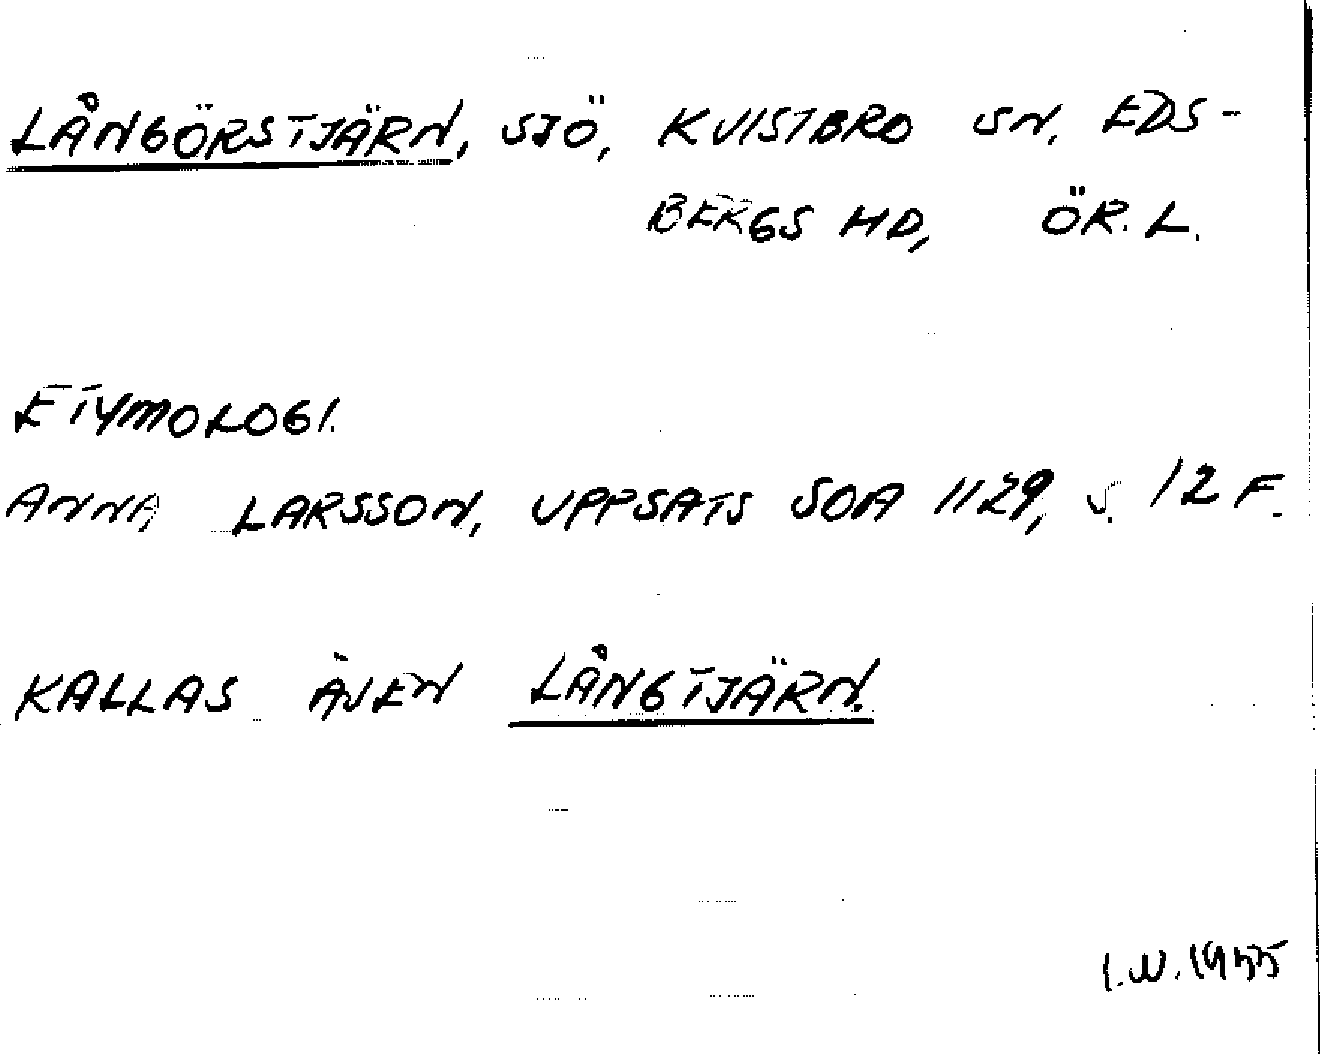 LÅNGÖRSTJÄRN, SJÖ, KVISTBRO SN, EDS-
BERGS HD, ÖR. L.
ETYMOLOGI.
ANNA LARSSON, UPPSATS SOA 1129, S. 12 F.
KALLAS ÄVEN LÅNGTJÄRN.
I.W. 1955